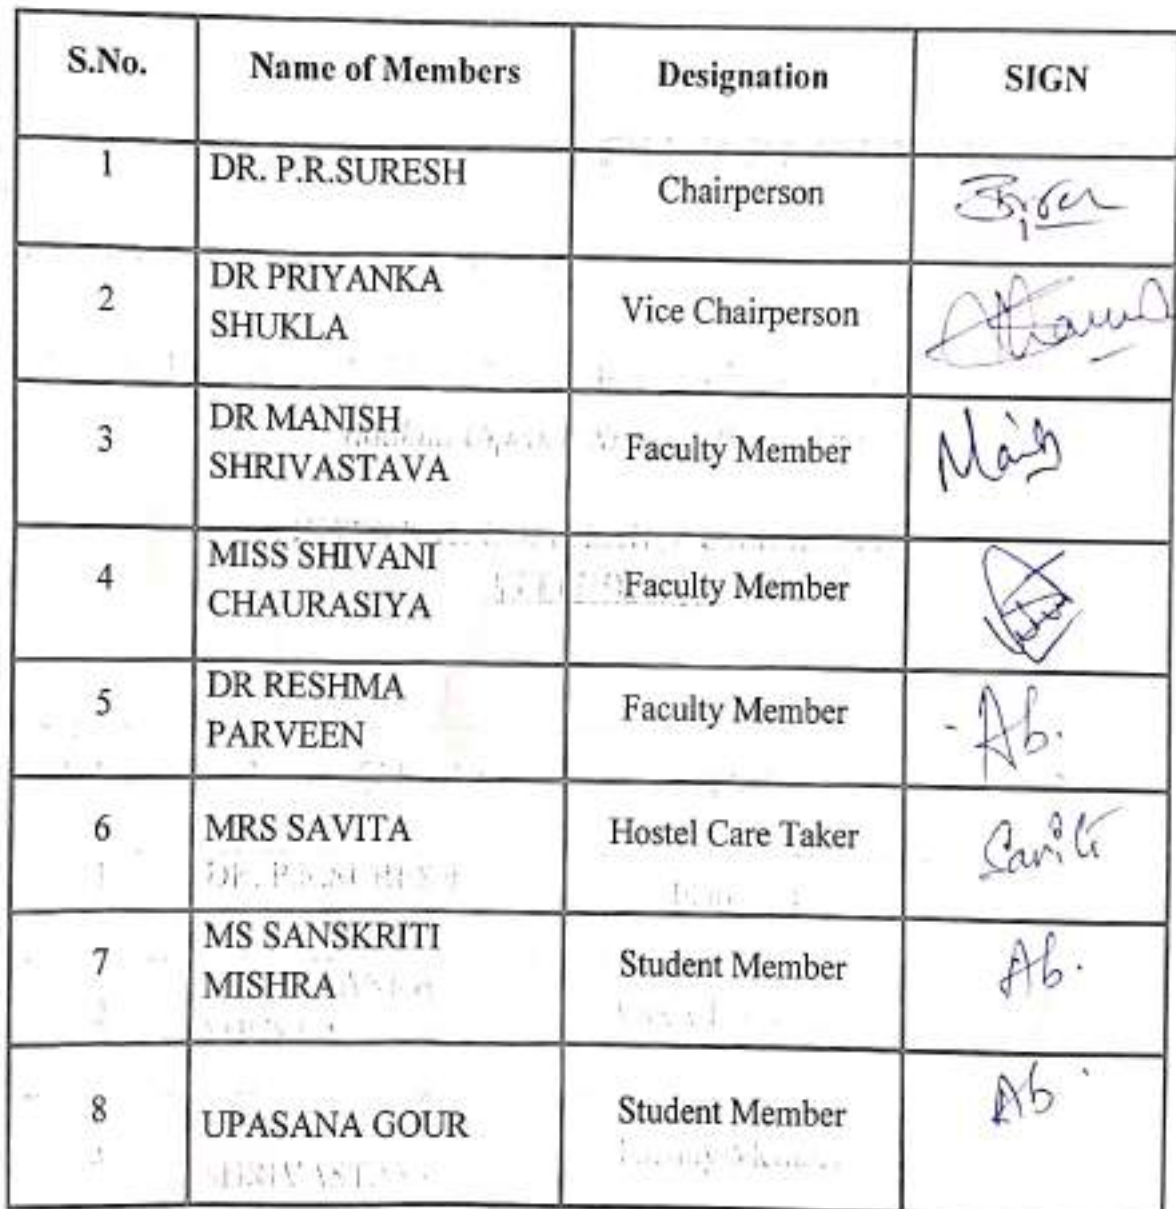 S.No. Name of Members Designation SIGN
1 DR. P.R.SURESH Chairperson
2 DR PRIYANKA
SHUKLA Vice Chairperson
3 DR MANISH
SHRIVASTAVA Faculty Member
4 MISS SHIVANI
CHAURASIYA Faculty Member
5 DR RESHMA
PARVEEN Faculty Member -Ab.
6 MRS SAVITA Hostel Care Taker
7 MS SANSKRITI
MISHRA Student Member Ab.
8 UPASANA GOUR Student Member Ab